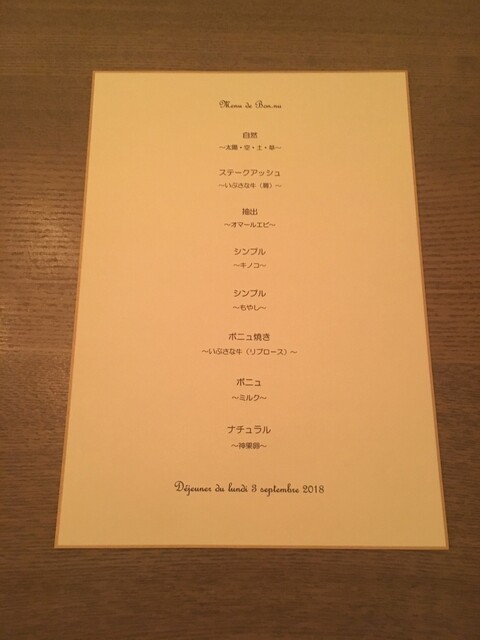 Menu de Bon.nu
自然
～太陽・空・土・草～
ステークアッシュ
～いぶさな牛（肩）～
抽出
～オマールエビ～
シンプル
～キノコ～
シンプル
～もやし～
ボニュ焼き
～いぶさな牛（リブロース）～
ボニュ
～ミルク～
ナチュラル
～神果卵～
Déjeuner du lundi 3 septembre 2018